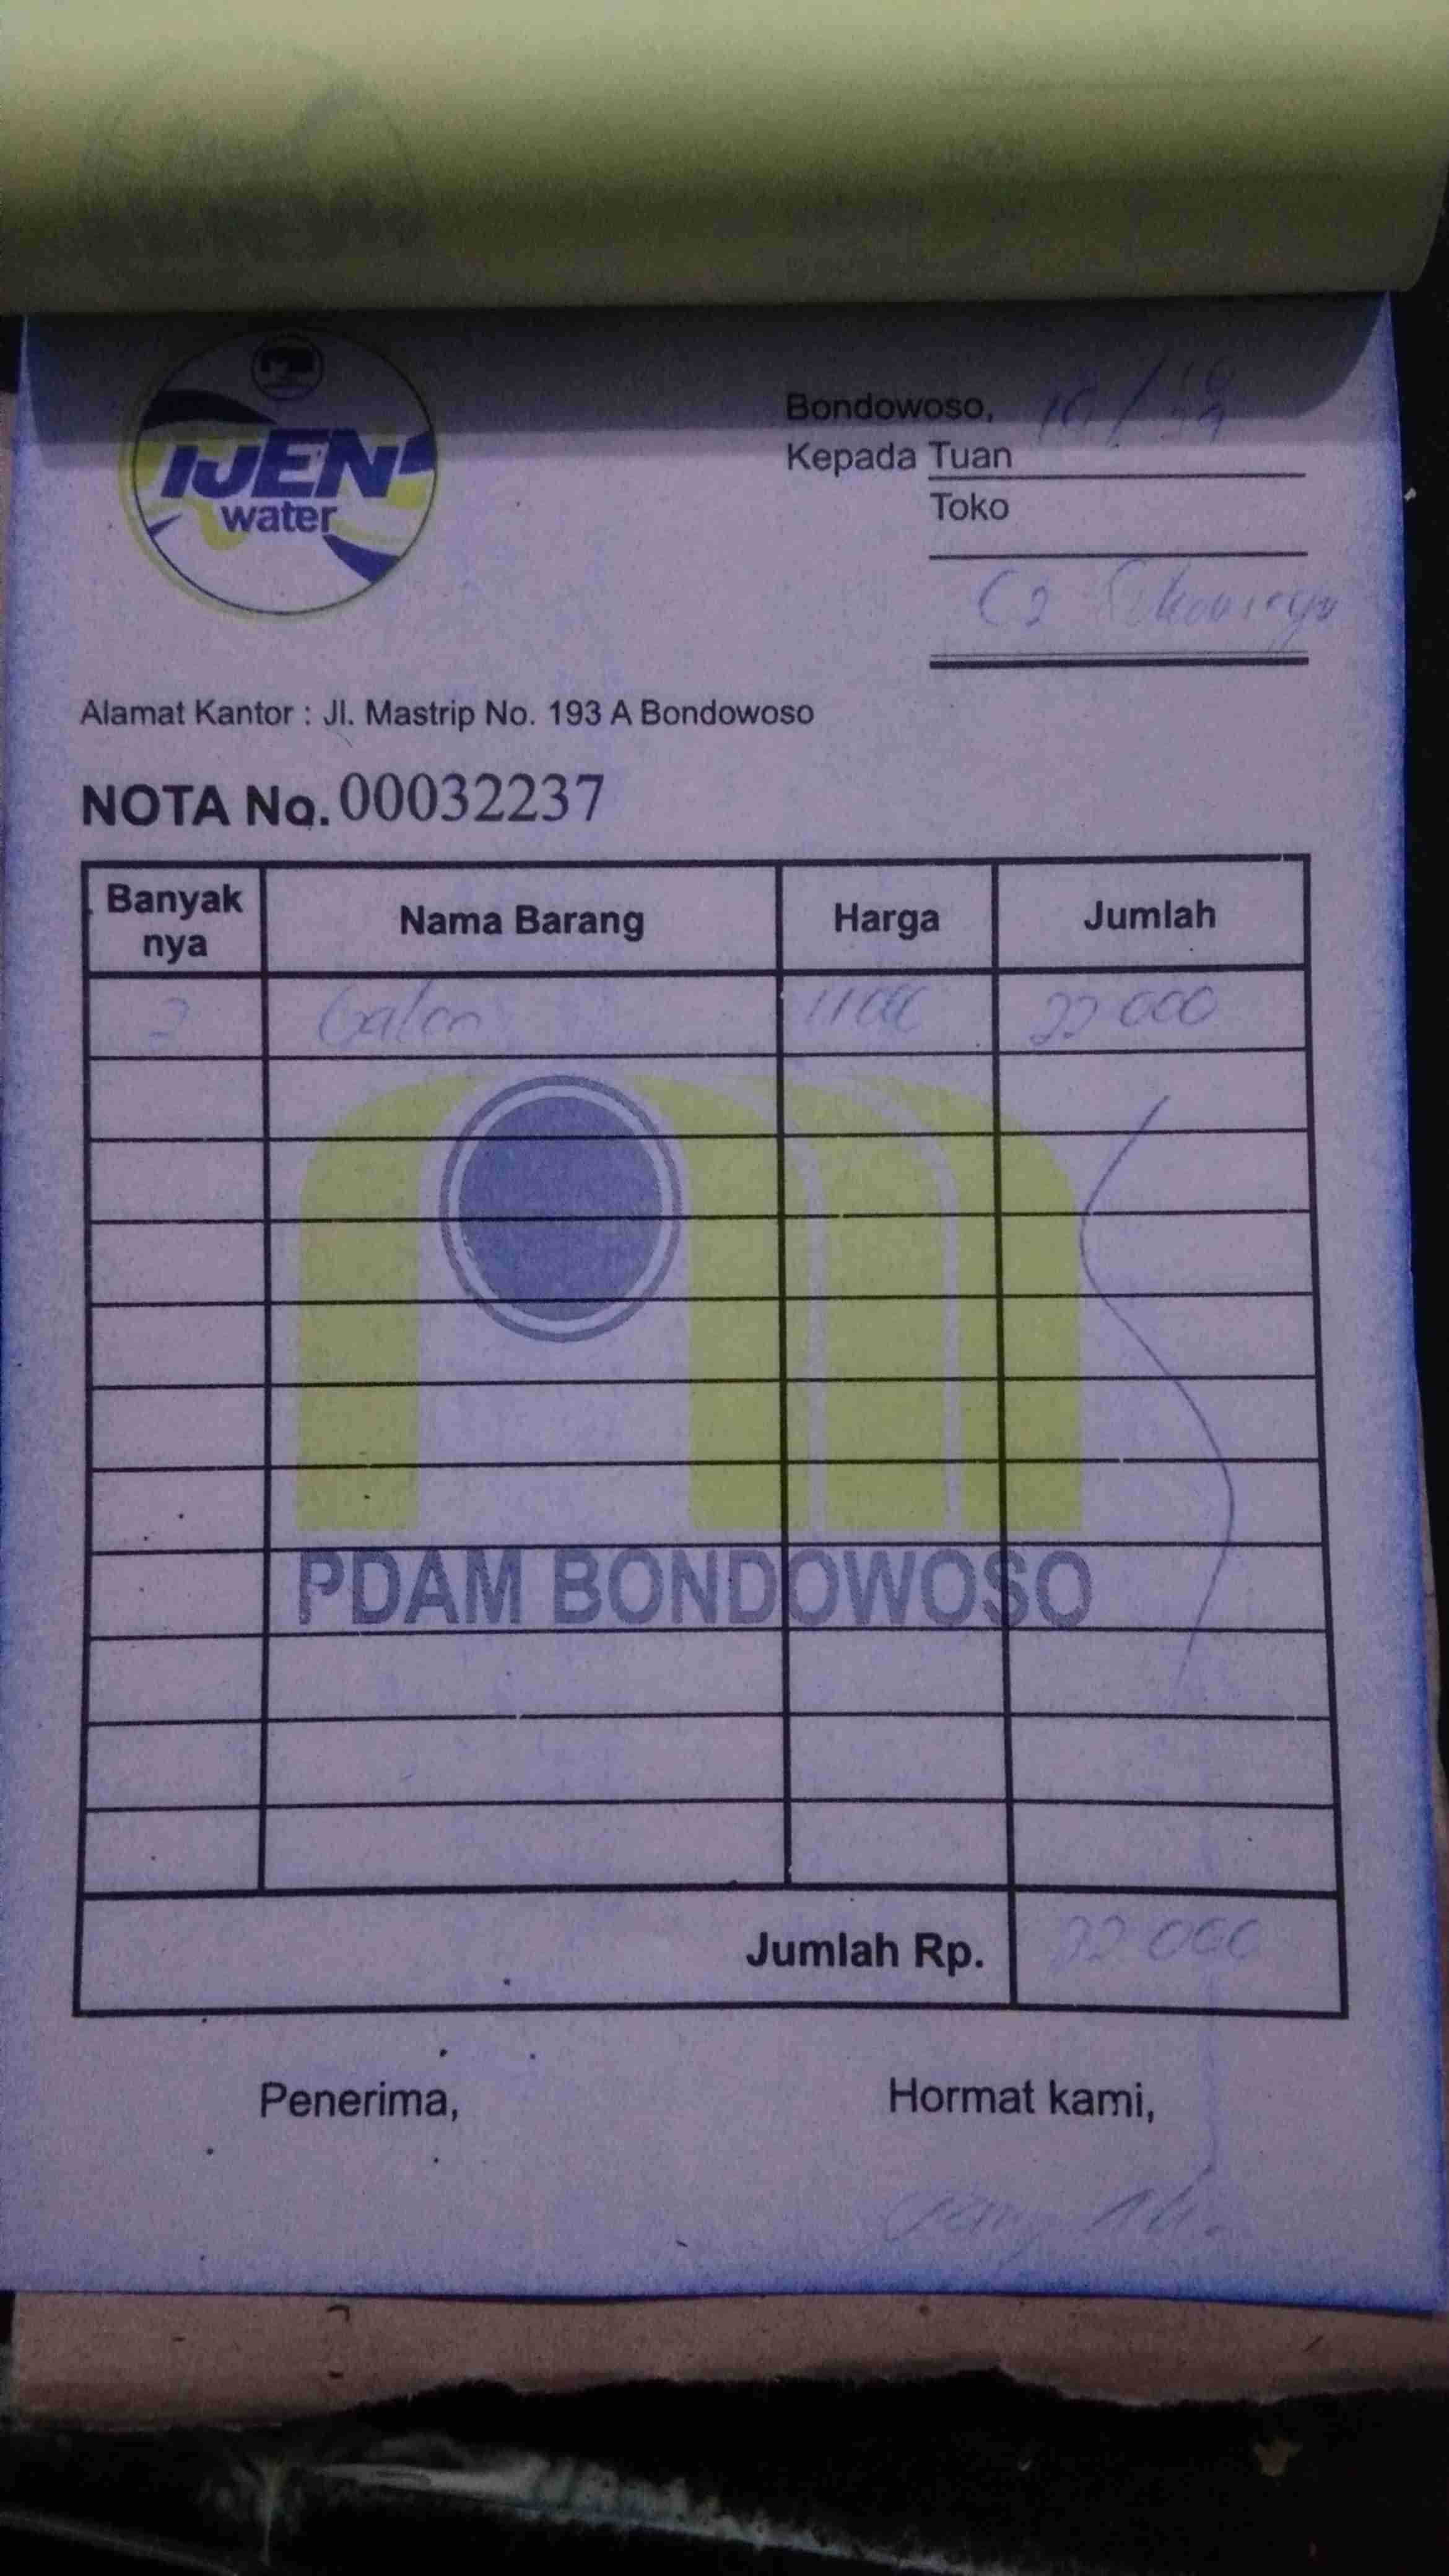 IJEN
water
Bondowoso,
Kepada Tuan
Toko
Alamat Kantor : Jl. Mastrip No. 193 A Bondowoso
NOTA No. 00032237
Banyak nya Nama Barang Harga Jumlah
2 Galon 11000 22 000
PDAM BONDOWOSO
Jumlah Rp. 22 000
Penerima, Hormat kami,